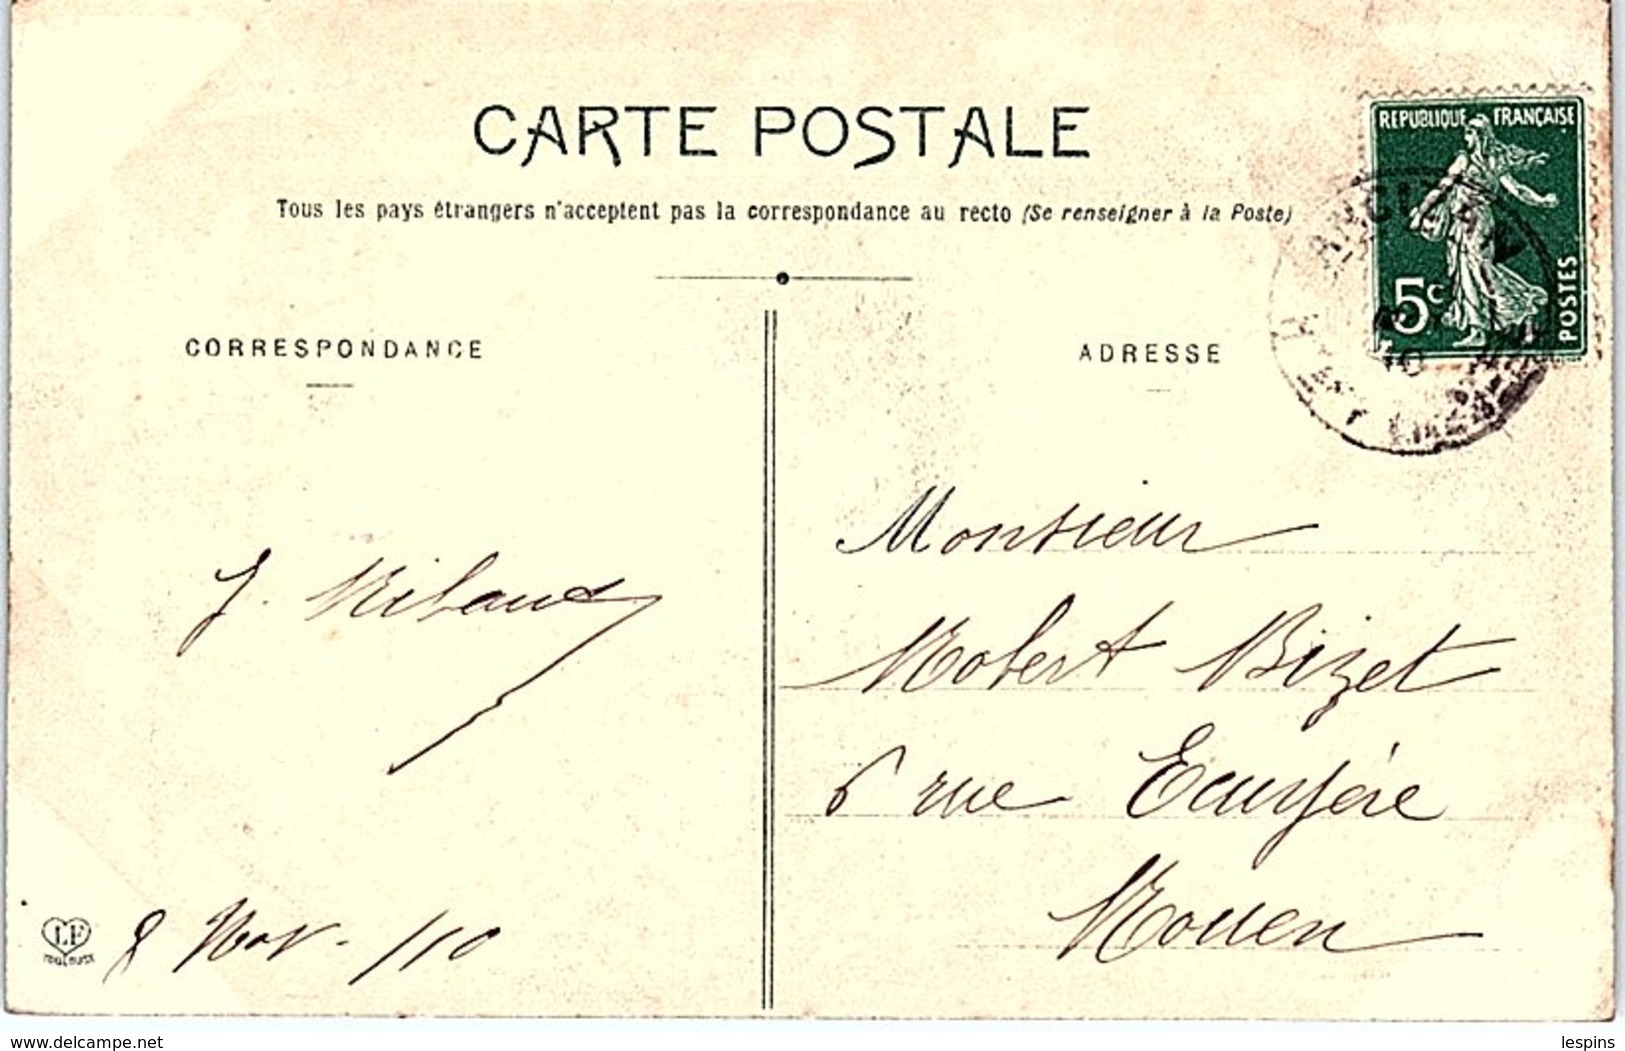 CARTE POSTALE
Tous les pays étrangers n'acceptent pas la correspondance au recto (Se renseigner à la Poste)
REPUBLIQUE FRANÇAISE
5c
POSTES
ANCIZAN
10
CORRESPONDANCE
ADRESSE
Monsieur
Robert Bizet
6 rue Ecuyère
Rouen
J. Ribaud
8 Nov. /10
LF
TOULOUSE
delcampe.net
lespins